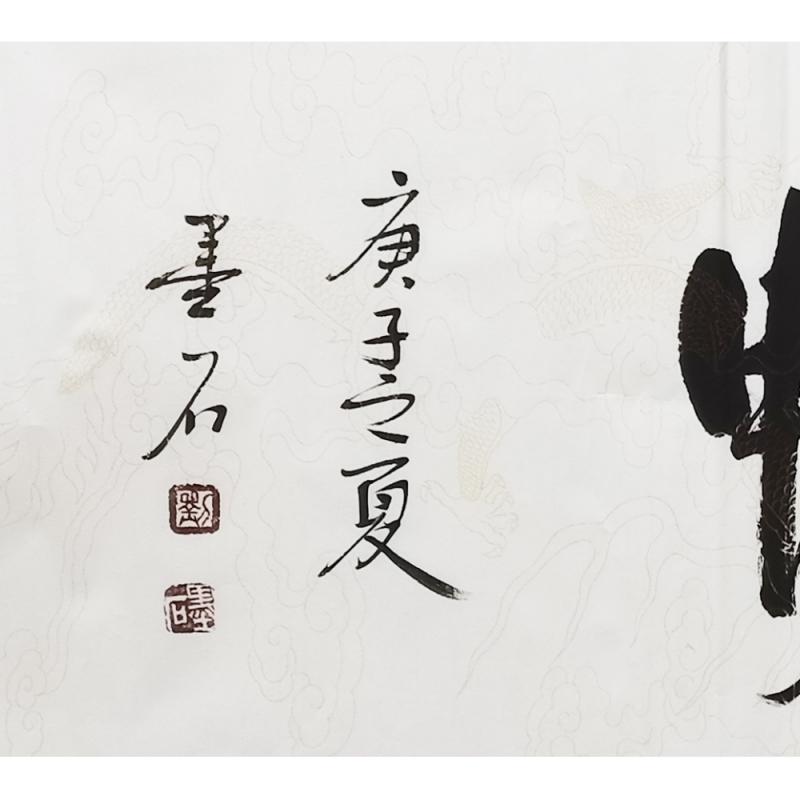 庚子之夏
墨石
劉
墨石